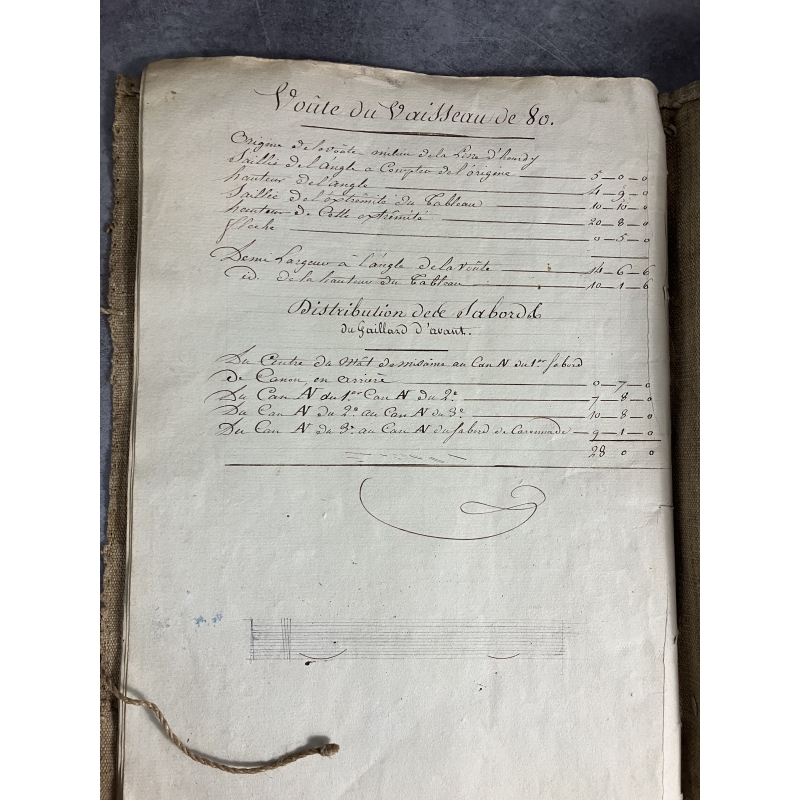 Voûte du Vaisseau de 80.
Origine de la voûte milieu de la Lisse d'hourdy
Saillie de l'angle a Compter de l'origine — 5 — 0 — 0
hauteur de l'angle — 4 — 9 — 0
Saillie de l'extrêmité du Tableau — 10 — 10 — 0
hauteur de Cette extrêmité — 20 — 8 — 0
fleche — 0 — 5 — 0
Demi Largeur à l'angle de la voûte — 14 — 6 — 6
id. de la hauteur du Tableau — 10 — 1 — 6
Distribution des Sabords
du Gaillard d'avant.
Du Centre du Mât de misaine au Can AV du 1.er Sabord
de Canon, en arriere — 0 — 7 — 0
Du Can AV du 1.er Can AV du 2.e — 7 — 8 — 0
Du Can AV du 2.e au Can AV du 3.e — 10 — 8 — 0
Du Can AV du 3.e au Can AV du Sabord de Caronnade — 9 — 1 — 0
28 0 0